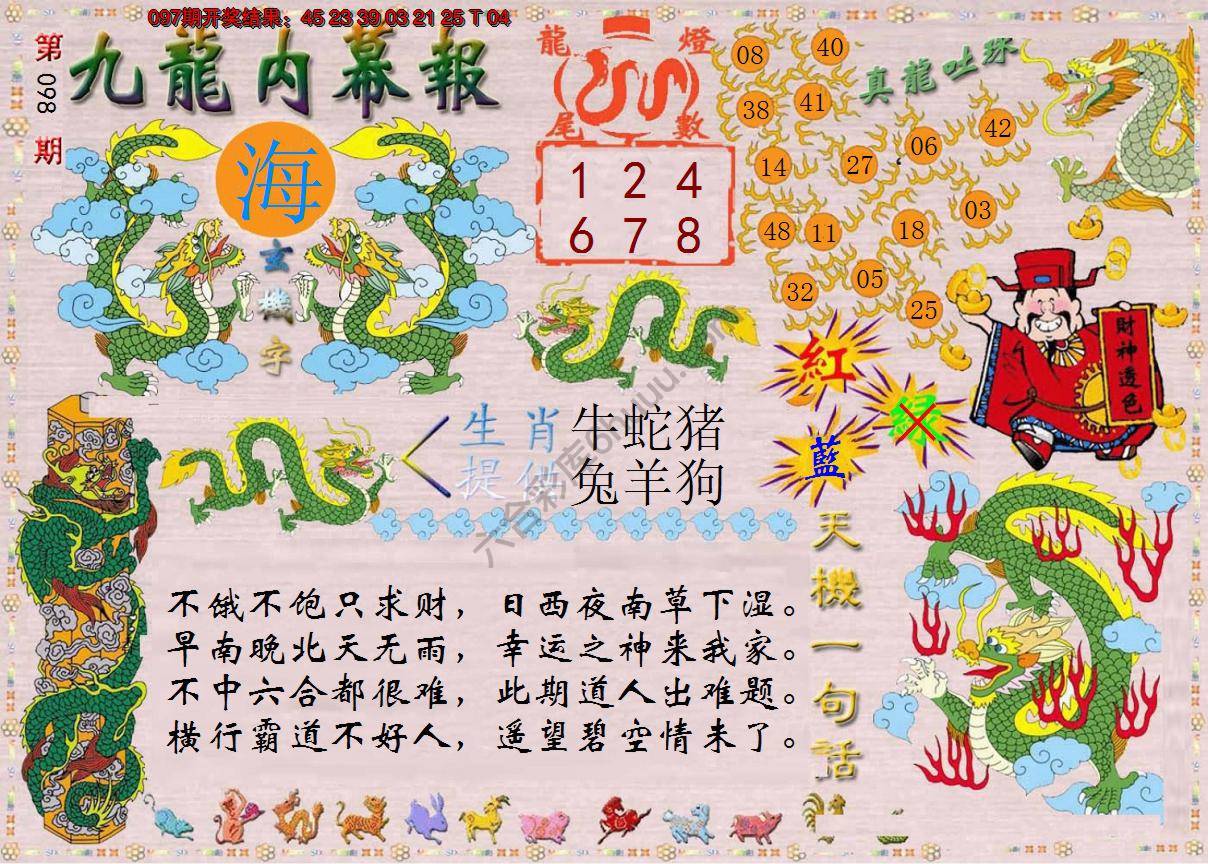 097期开奖结果：45 23 39 03 21 25 T 04
第098期
九龍内幕報
海
玄機字
龍燈
尾數
1 2 4
6 7 8
真龍吐珠
08 40
38 41
14 27 06 42
48 11 18 03
32 05 25
財神透色
紅
綠
藍
生肖
提供
牛蛇猪
兔羊狗
六合彩库
天機一句話
不饿不饱只求财，日西夜南草下湿。
早南晚北天无雨，幸运之神来我家。
不中六合都很难，此期道人出难题。
横行霸道不好人，遥望碧空情未了。